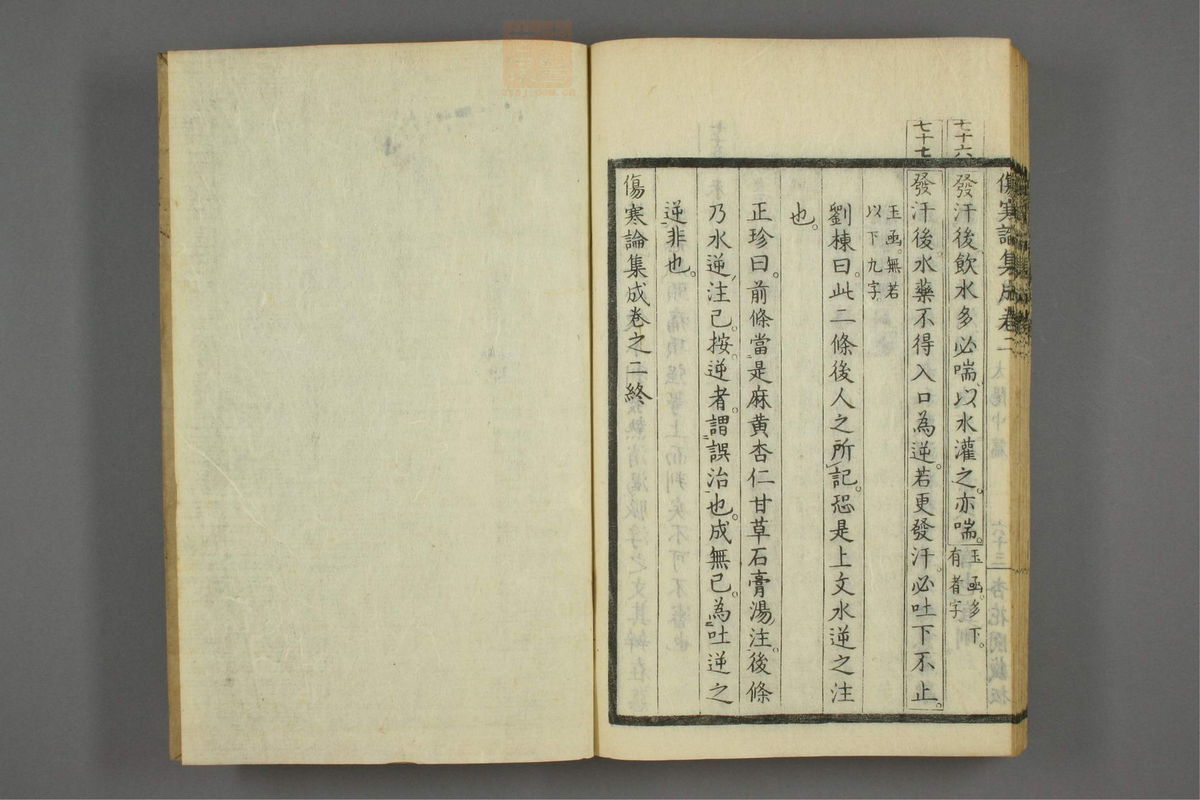 傷寒論集成卷二
太陽中篇
六十三
七十六
發汗後飲水多必喘。以水灌之。亦喘。
玉函。多下。
有者字
七十七
發汗後水藥不得入口為逆。若更發汗。必吐下不止。
玉函。無若
以下九字
劉棟曰。此二條後人之所記。恐是上文水逆之注
也。
正珍曰。前條當是麻黃杏仁甘草石膏湯注。後條
乃水逆注已。按逆者。謂誤治也。成無已。為吐逆之
逆非也。
傷寒論集成卷之二終